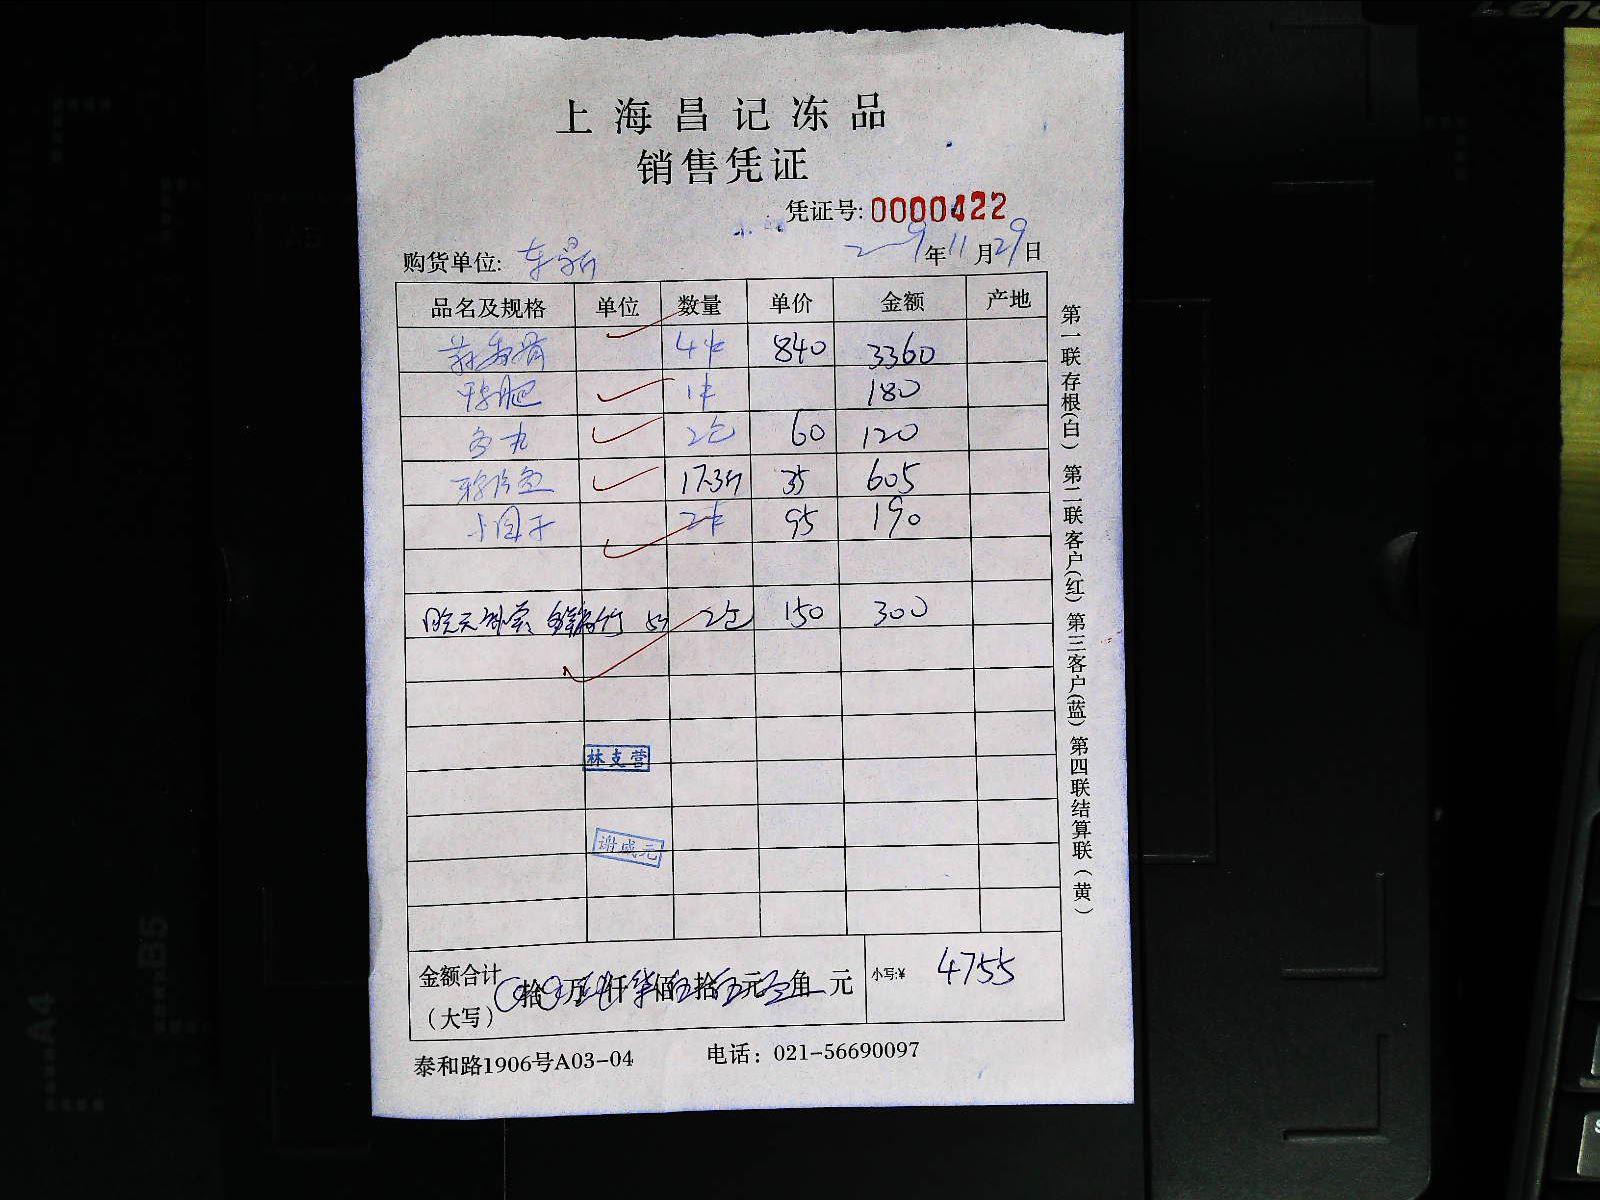 上海昌记冻品
销售凭证
凭证号:0000422
购货单位: 年11月29日
品名及规格 单位 数量 单价 金额 产地
4件 840 3360
1件 180
鱼丸 2包 60 120
17.3斤 35 605
2件 95 190
2包 150 300
林支营
谢成元
金额合计
(大写)
拾 万 仟 佰 拾 元 角 元 小写:¥ 4755
泰和路1906号A03-04 电话：021-56690097
第一联存根(白) 第二联客户(红) 第三客户(蓝) 第四联结算联(黄)
A4
B5